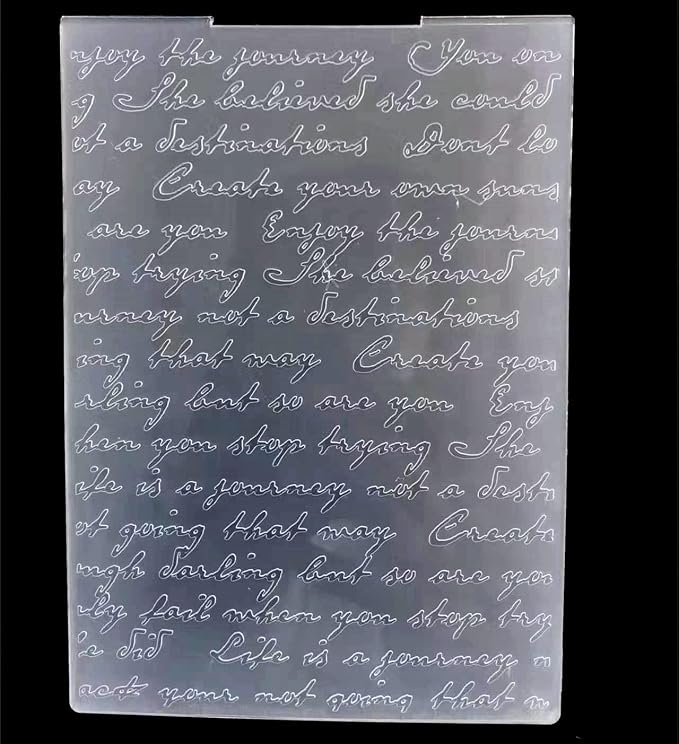 njoy the journey You on
g She believed she could
ot a destinations Dont lo
ay Create your own suns
are you Enjoy the journ
op trying She believed s
urney not a destinations
ing that way Create you
rling but so are you Enj
hen you stop trying She
ife is a journey not a desti
ot going that way Create
ugh darling but so are you
ly fail when you stop try
e did Life is a journey n
back your not going that w